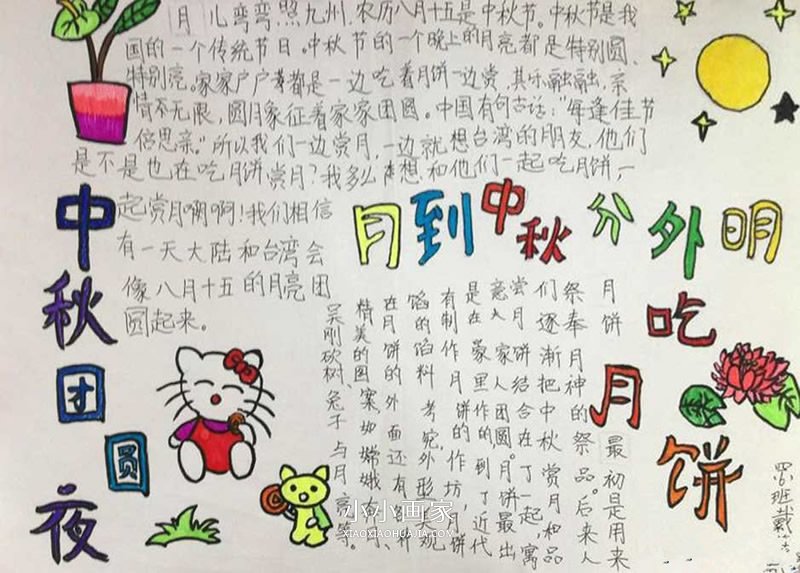 月儿弯弯照九州,农历八月十五是中秋节。中秋节是我
国的一个传统节日。中秋节的一个晚上的月亮都是特别圆、
特别亮。家家户户都是一边吃着月饼一边赏,其乐融融,亲
情无限,圆月象征着家家团圆。中国有句古话:"每逢佳节
倍思亲。"所以我们一边赏月,一边就想台湾的朋友,他们
是不是也在吃月饼赏月?我多么想和他们一起吃月饼,一
起赏月啊!我们相信
有一天大陆和台湾会
像八月十五的月亮团
圆起来。
中秋团圆夜
月到中秋分外明
吃月饼
月饼最初是用来
祭奉月神的祭品。后来人
们逐渐把中秋赏月和品
尝月饼结合在了一起,寓
意家人团圆。月饼最出
是在家里作的到了近代
有制作月饼的作坊,月饼
馅的馅料考究外形美观
在月饼的外面还有各种
精美的图案如嫦娥奔月、
吴刚砍树、兔子与月亮等。
小小画家
XIAOXIAOHUAJIA.COM
班戴